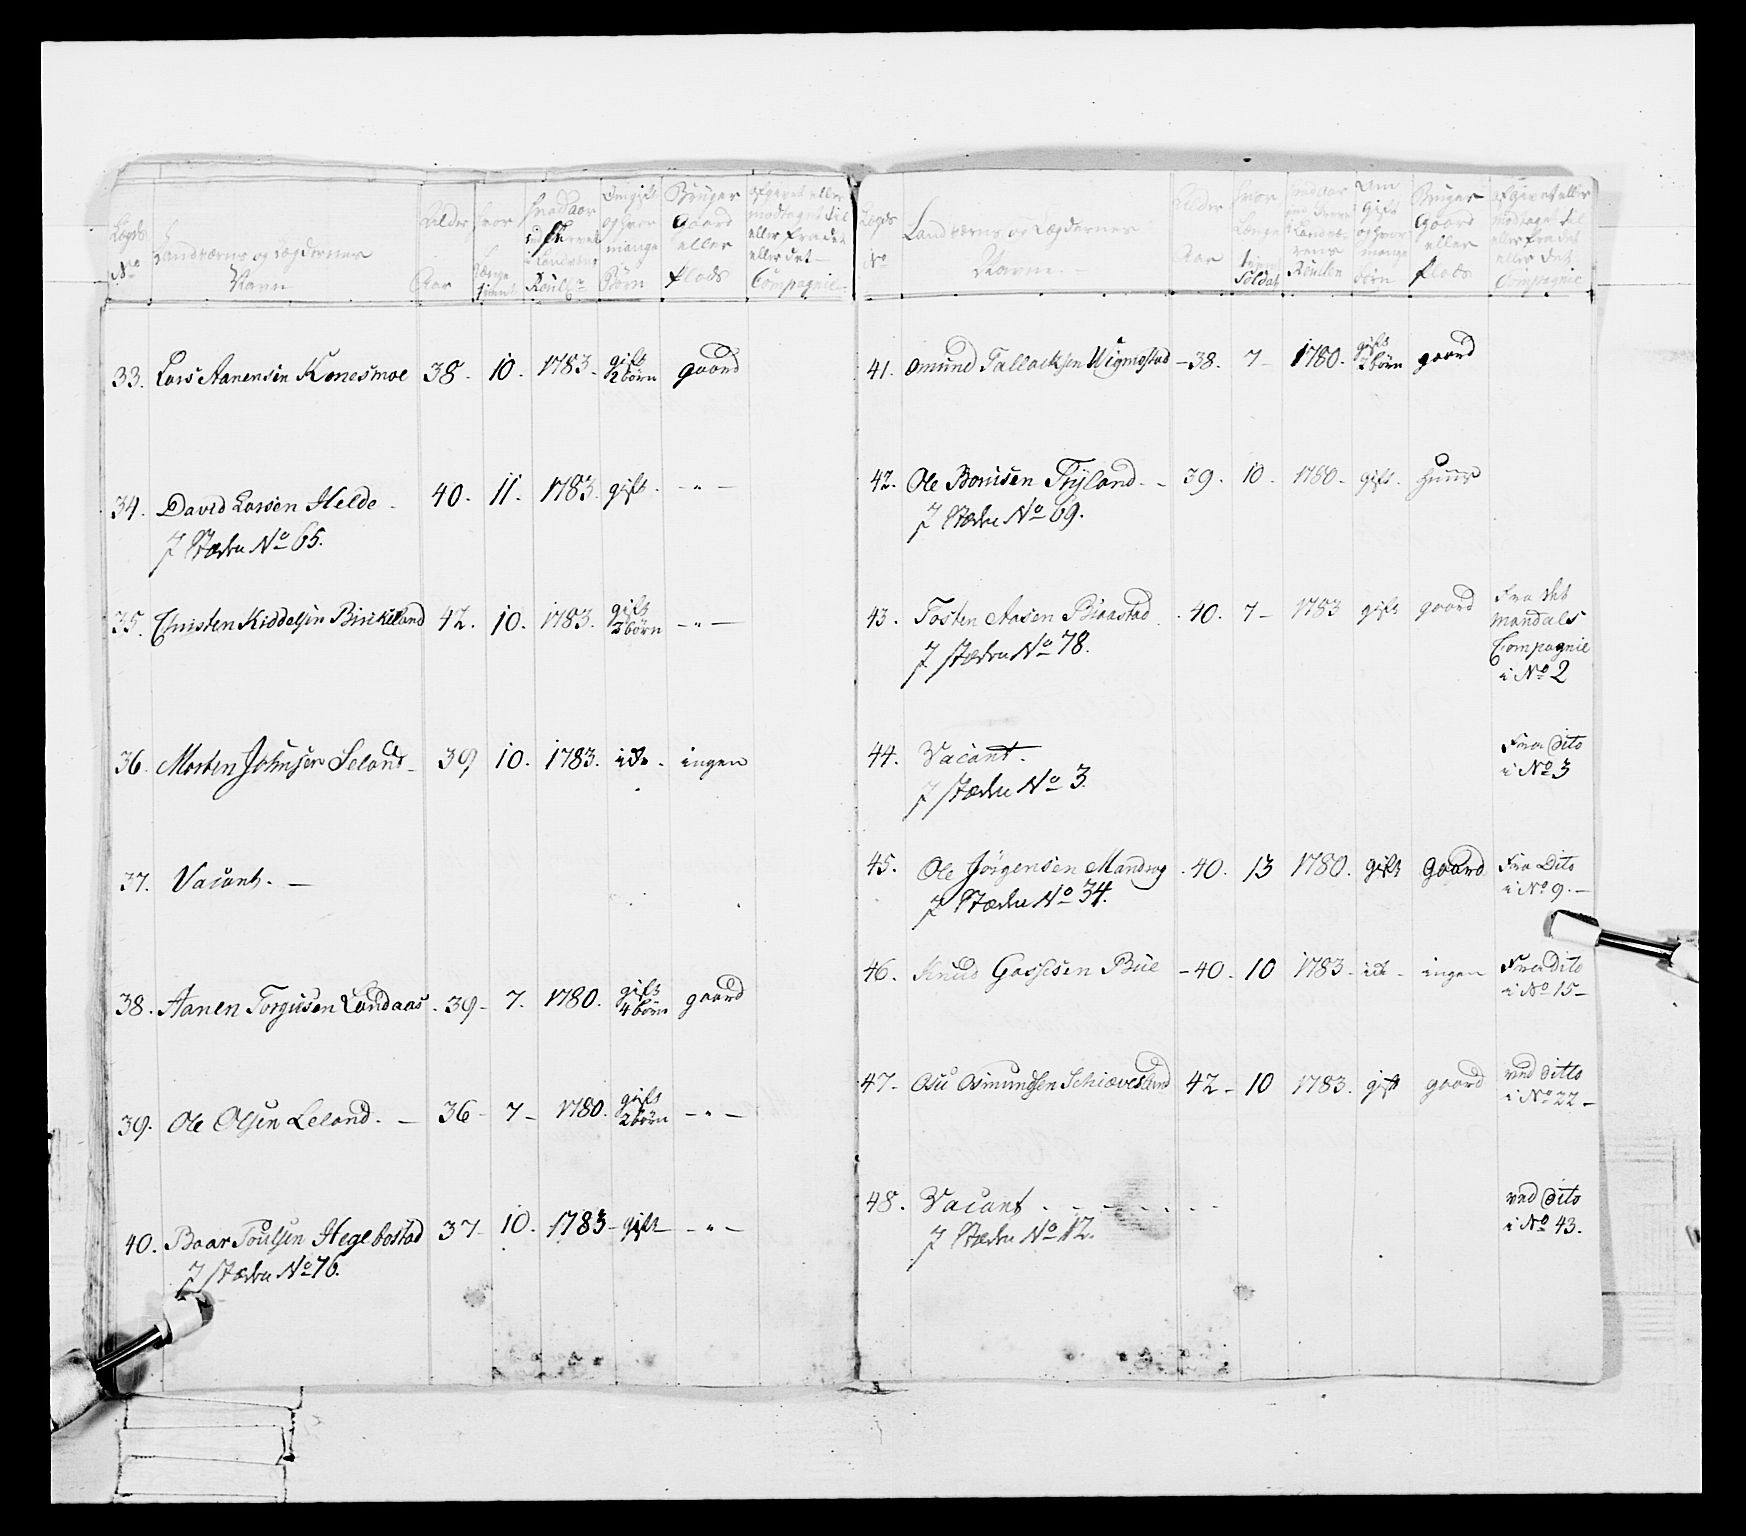 Legds No
Landværns og Legdernes Navn
Alder Aar
hvor længe tient
hvad aar
i Landværns Roullen
Om gift og hvor mange Børn
Bruger Gaard eller Plads
afgivet eller modtaget til eller fra det eller det Compagnie
33. Lars Aanensen Konesmoe 38. 10. 1783. gift 2 børn gaard
34. David Larsen Helde 40. 11. 1783. gift. - " -
J Stæden No 65.
35. Christen Kiddelsen Birkeland 42. 10. 1783. gift 2 børn - " -
36. Morten Johnsen Leland 39 10. 1783. ide. ingen
37. Vacant. -
38. Aanen Torgiusen Landaas. 39 - 7. 1780. gift 4 børn gaard
39. Ole Olsen Leland. - 36 - 7 - 1780. gift 2 børn - " -
40. Baar Poulsen Hegebostad 37 - 10. 1783 - gift - " -
J Stæden No 76.
Legds No
Landværns og Legdernes Navne. -
Alder Aar
hvor Længe tient Soldat
Om Gift og hvor mange børn
Bruger Gaard eller Plads
afgivet eller modtaget til eller fra det eller det Compagnie
41. Omund Tallachsen Wigmostad - 38. 7 - 1780. gift 2 børn gaard
42. Ole Bonisen Thÿland. - 39. 10. 1780. gift. Huus
J Stæden No 69.
43. Tosten Aasen Biaastad. 40. 7 - 1783 gift gaard Fra det
Mandals
Compagnie
i No 2
J Stæden No 78.
44. Vacant. Fra Dito
i No 3
J Stæden No 3.
45. Ole Jörgensen Mandrog. 40. 13 1780. gift Gaard Fra Dito
i No 9. -
J Stæden No 34.
46. Knud Gassesen Bue - 40. 10 1783. ide - ingen Fra dito
i No 15 -
47. Osu Osmundsen Schiævesland 42 - 10 1783. gift gaard ved ditto
i No 22 -
48. Vacant. - - - ved Dito
i No 43.
J Stæden No 12.